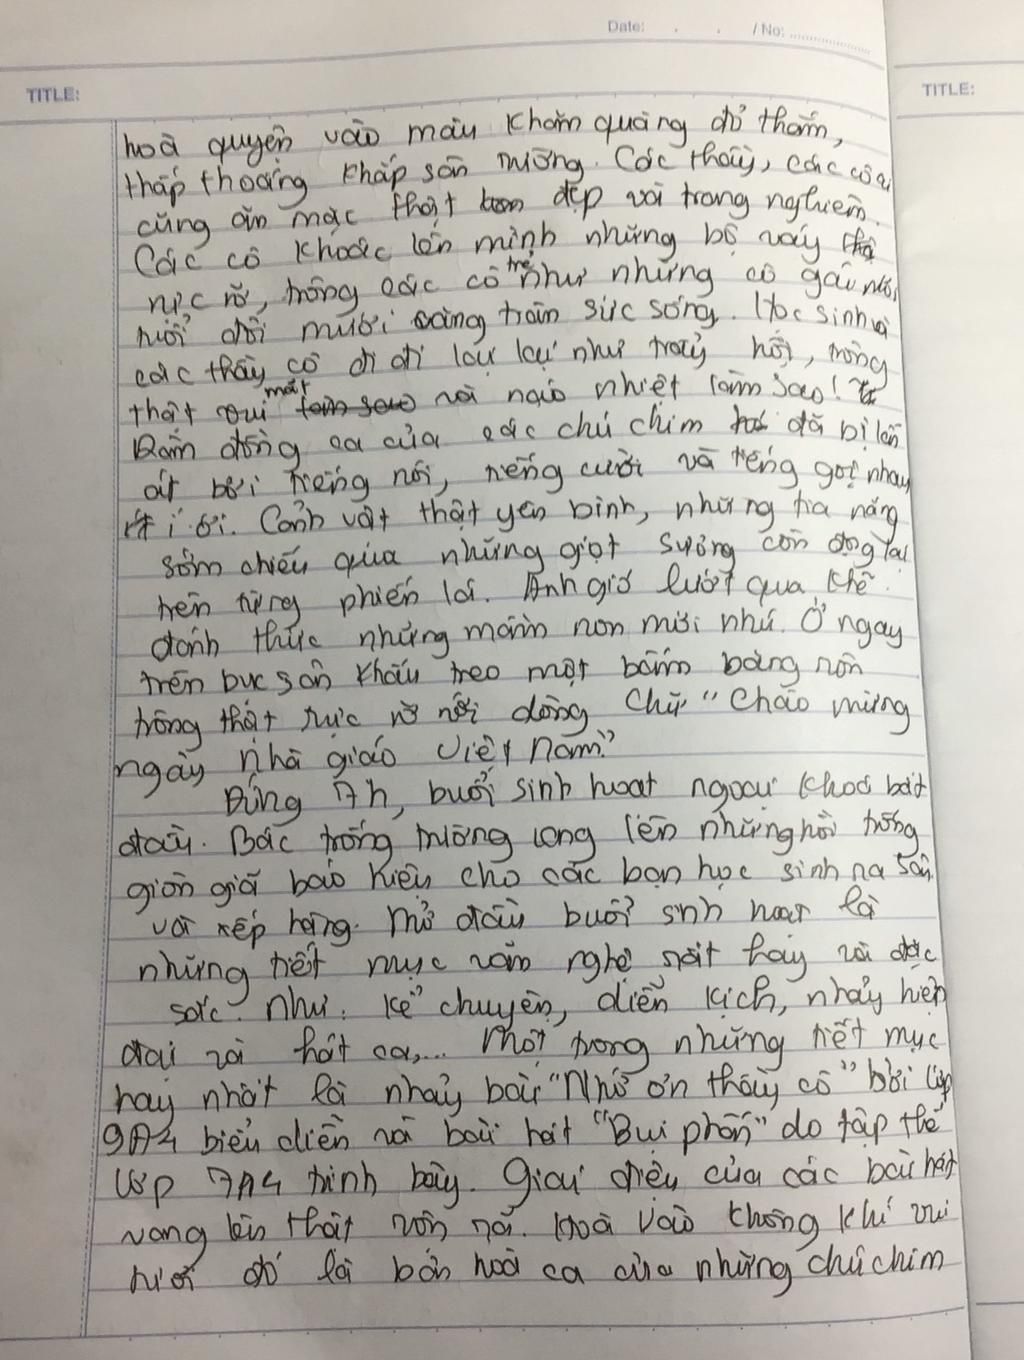 Date: . . / No: ..................
TITLE:
TITLE:
hoà quyện vào màu khăn quàng đỏ thắm,
thấp thoáng khắp sân trường. Các thầy, các cô ai
cũng ăn mặc thật đẹp và trang nghiêm.
Các cô khoác lên mình những bộ váy
rực rỡ, trông các cô trẻ như những cô gái mới
tuổi đôi mươi căng tràn sức sống. Học sinh và
các thầy cô đi đi lại lại như trẩy hội, trông
thật vui mắt và náo nhiệt làm sao!
Dàn đồng ca của các chú chim đã bị lấn
át bởi tiếng nói, tiếng cười và tiếng gọi nhau
í ới. Cảnh vật thật yên bình, những tia nắng
sớm chiếu qua những giọt sương còn đọng lại
trên từng phiến lá. Anh gió lướt qua khẽ
đánh thức những mầm non mới nhú. Ở ngay
trên bục sân khấu treo một tấm băng rôn
trông thật rực rỡ với dòng chữ "Chào mừng
ngày nhà giáo Việt Nam"
Đúng 7h, buổi sinh hoạt ngoại khoá bắt
đầu. Bác trống trường vang lên những hồi trống
giòn giã báo hiệu cho các bạn học sinh ra sân
và xếp hàng. Mở đầu buổi sinh hoạt là
những tiết mục văn nghệ rất hay và đặc
sắc như: kể chuyện, diễn kịch, nhảy hiện
đại và hát ca,... Một trong những tiết mục
hay nhất là nhảy bài "Nhớ ơn thầy cô" bởi lớp
9A4 biểu diễn và bài hát "Bụi phấn" do tập thể
lớp 7A4 trình bày. Giai điệu của các bài hát
vang lên thật rộn rã. Hoà vào không khí vui
tươi đó là bản hoà ca của những chú chim